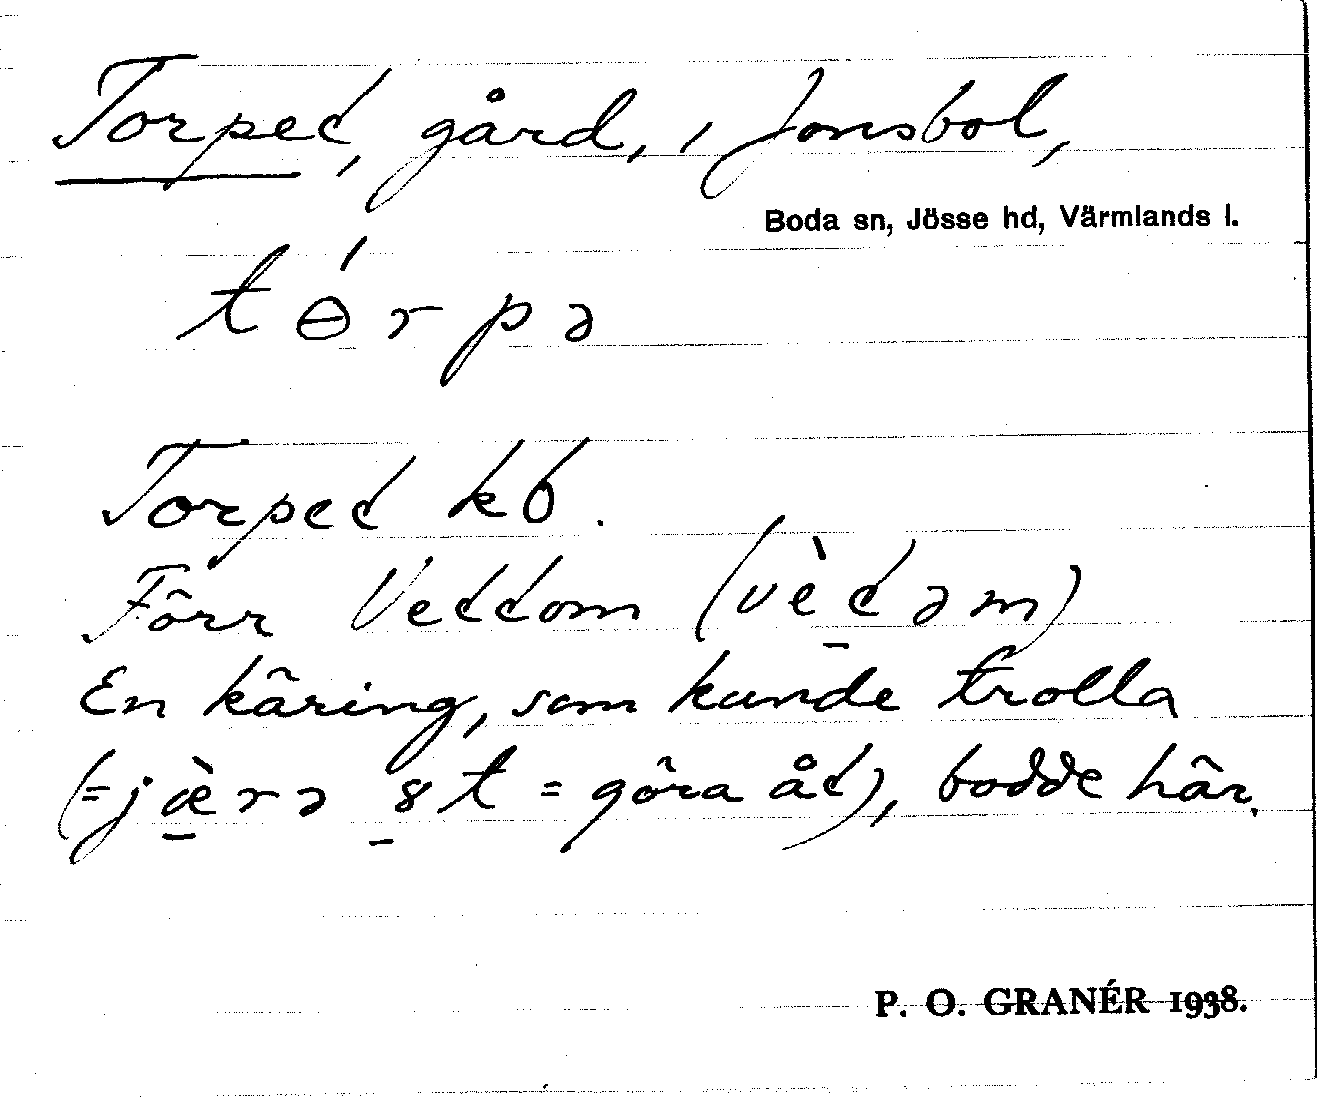 Torpet, gård, i Jonsbol,
Boda sn, Jösse hd, Värmlands l.
tɵ́rpə
Torpet kb.
Förr Vettom (vètəm)
En käring, som kunde trolla
(=jæ̀rə 8t = göra åt), bodde här.
P. O. GRANÉR 1938.